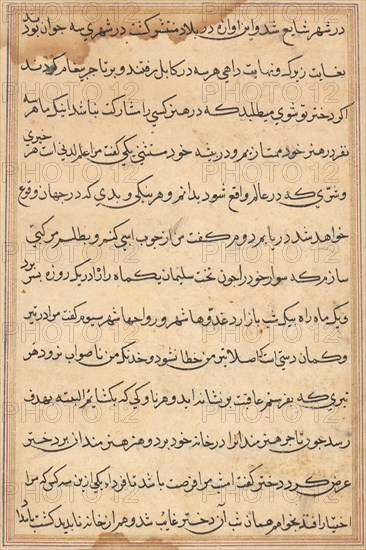 در شهر شایع شد و این اوازه در بلاد منتشر کشت در شهری سه جوان بود
بغایت زیرک و نهایت داهی هر سه در کابل رفتند و بر تاجر پیغام کردند
اکر دختر تو شوی میطلبد که در هنر کسی را مشارکت نباشد اینک ما سه
نفر در هنر خود ممتازیم و در پیشه خود مستثنی یکی کفت مرا علم لدنی است هر خیری
و شری که در عالم واقع شود بدانم و هر نیکی و بدی که در جهان وقوع
خواهد شد دریابم دوم کفت من از چوب اسپی کنم و بطلسم مرکبی
سازم که سوار خود را چون تخت سلیمان یکماه راه را در یک روزه ببرد
و یک ماه راه بیک شب باز ارد غدوها شهر و رواحها شهر سیوم کفت مرا در تیر
و کمان دستی است که اصلا تیر من خطا نشود و خدنک من ناصواب نرود هر
تیری که بفرستم عاقبت بر نشانه اید و هر ناوکی که بکشایم البته بهدف
رسد چون تاجر هنرمندانرا در خانه خود برد و هنر هنرمندان بر دختر
عرض کرد دختر کفت امشب مرا فرصت باشد تا فردا یکی ازین سه کس که مرا
اختیار افتد بخواهم همان شب آن دختر غایب شد و هم از خانه ناپدید کشت بامدادا